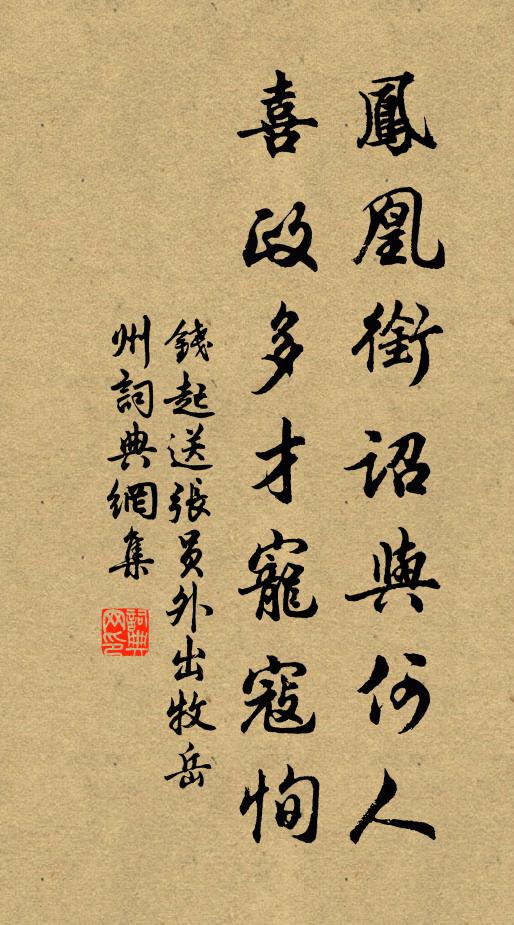 鳳凰銜詔與何人
喜政多才寵寇恂
錢起送張員外出牧岳
州詞典網集
詞典
网印